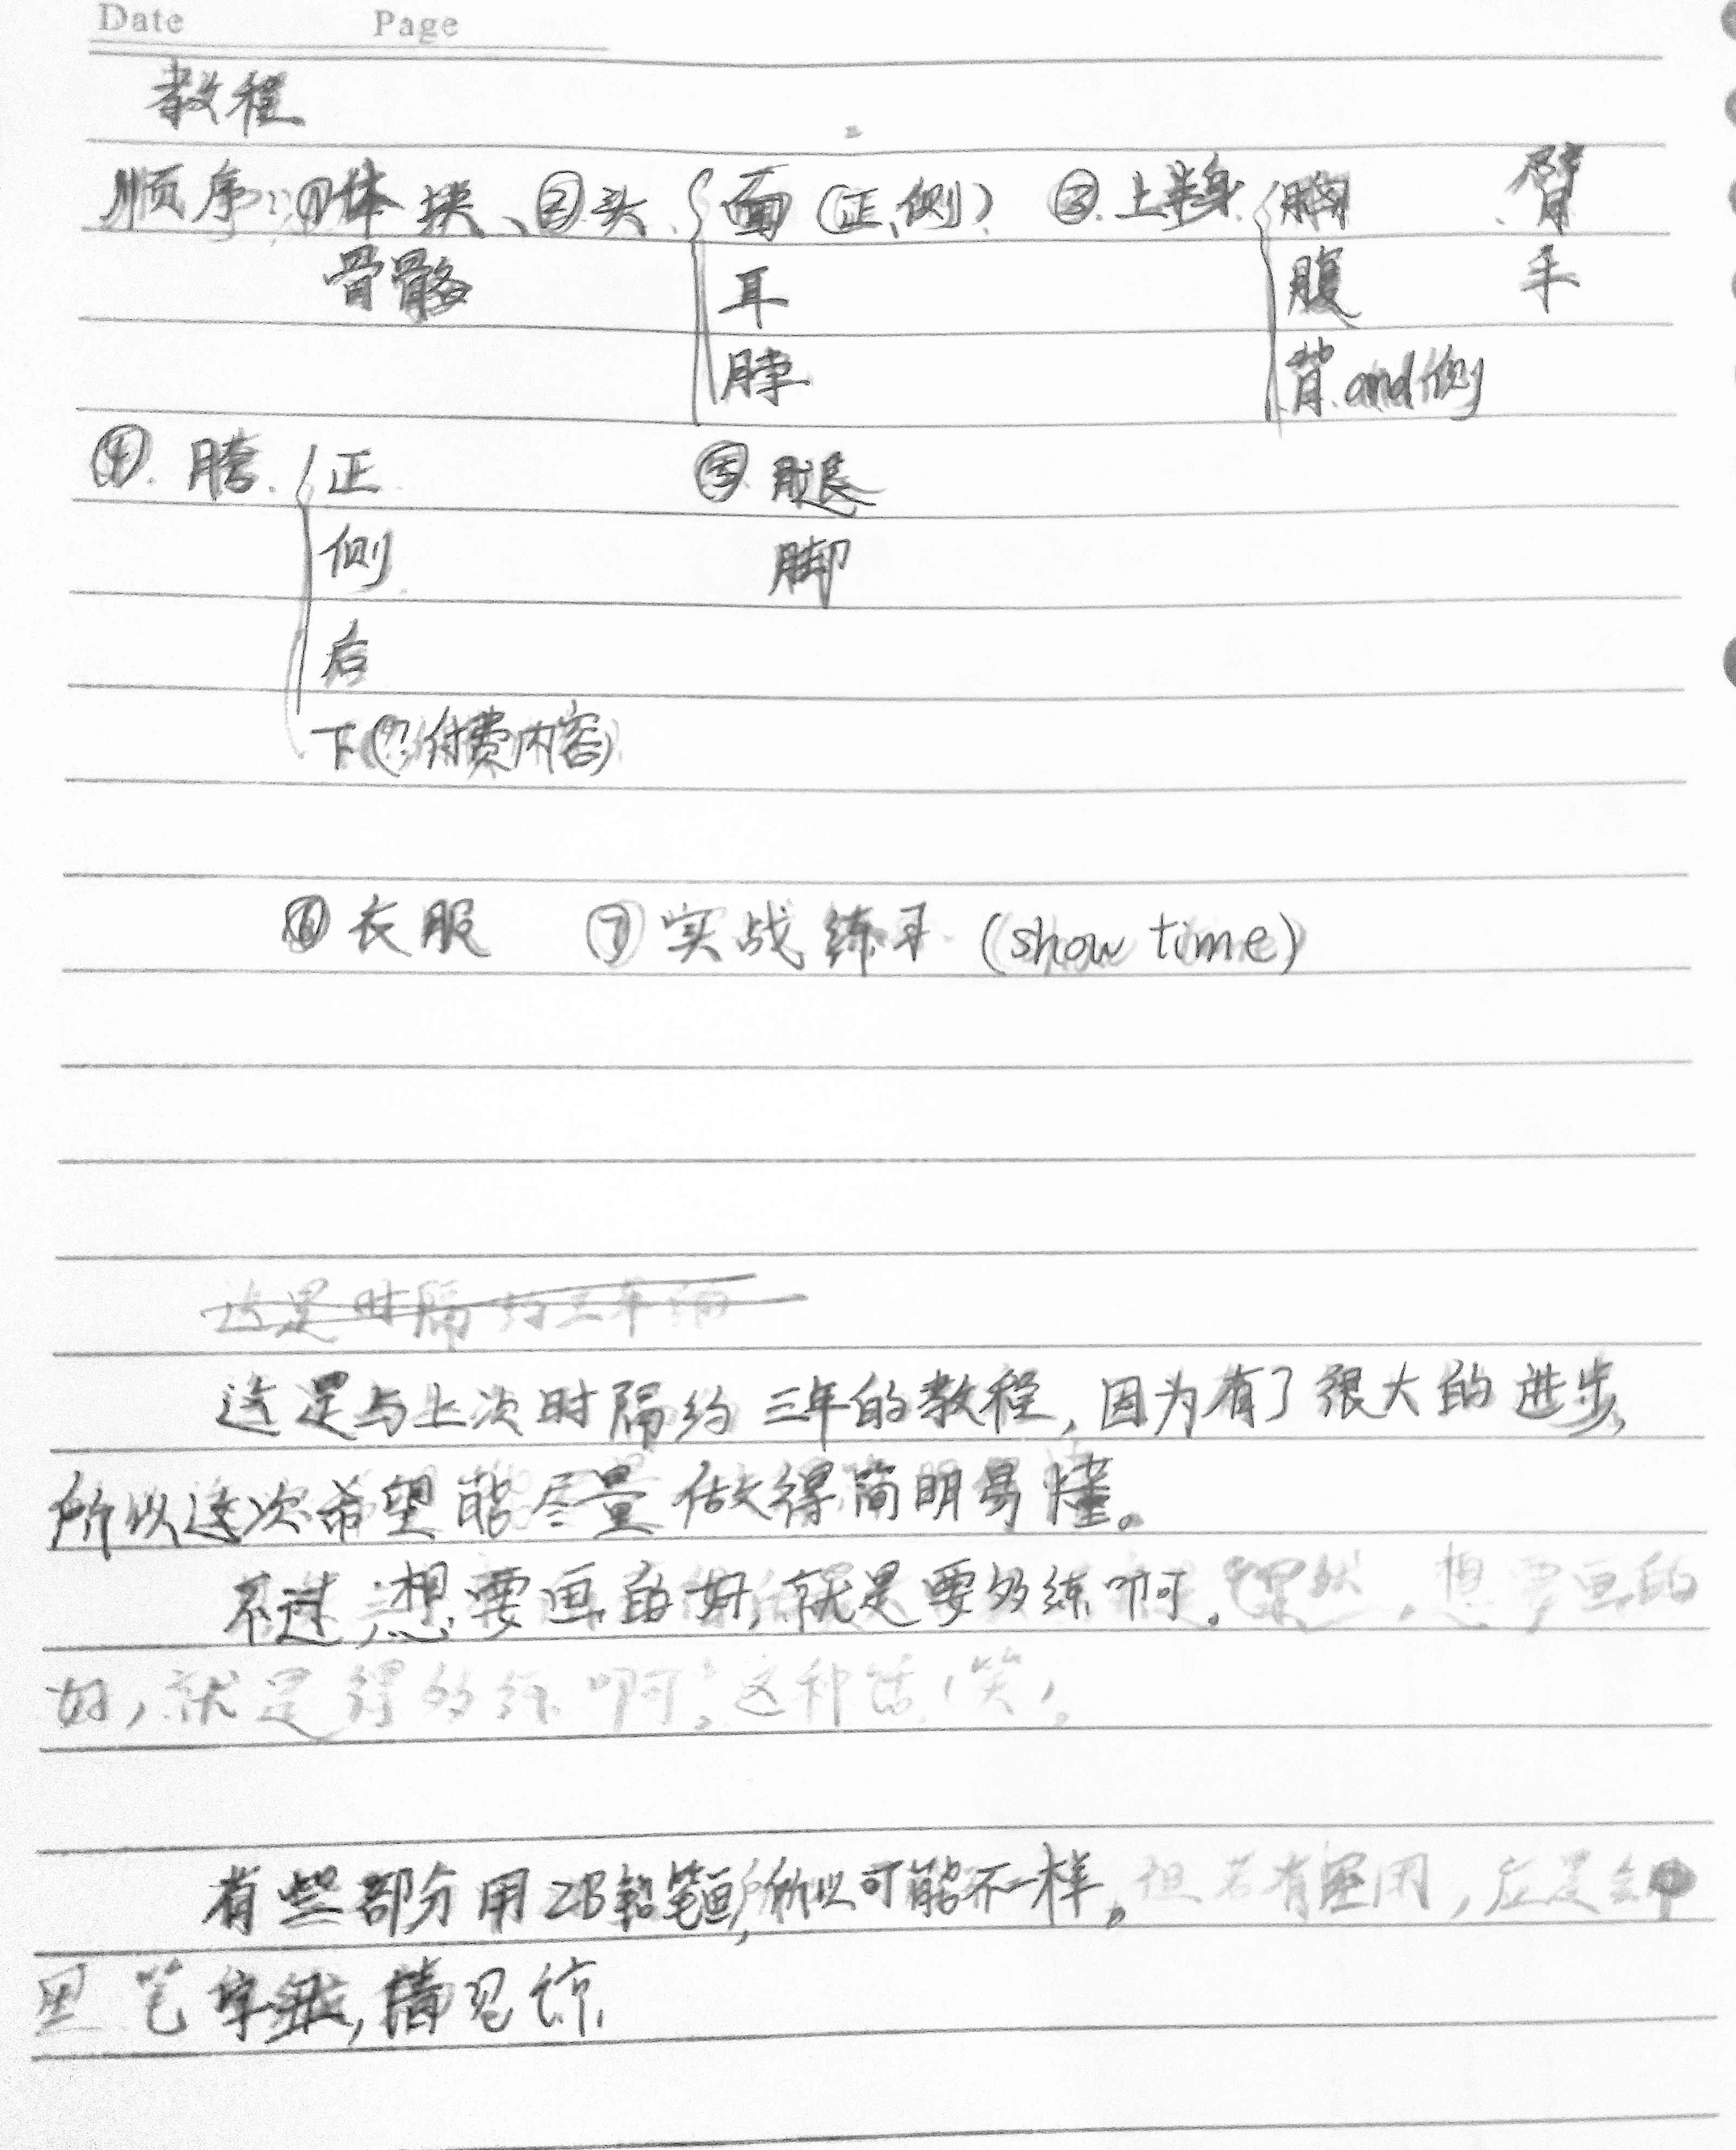 Date Page
教程
顺序：①体块、②头{面（正、侧） ③上半身{胸 、臂
骨骼 耳 腹 手
脖 背 and 侧
④. 胯{正 ⑤ 腿
侧 脚
后
下(?付费内容)
⑥ 衣服 ⑦ 实战练习 (show time)
这是时隔约三年的
这是与上次时隔约三年的教程，因为有了很大的进步，
所以这次希望能尽量做得简明易懂。
不过，想要画的好，就是要多练啊。果然，想要画的
好，就是得多练啊。这种话（笑）。
有些部分用2B铅笔画，所以可能不一样。但若有用，应是
笔 请见谅.